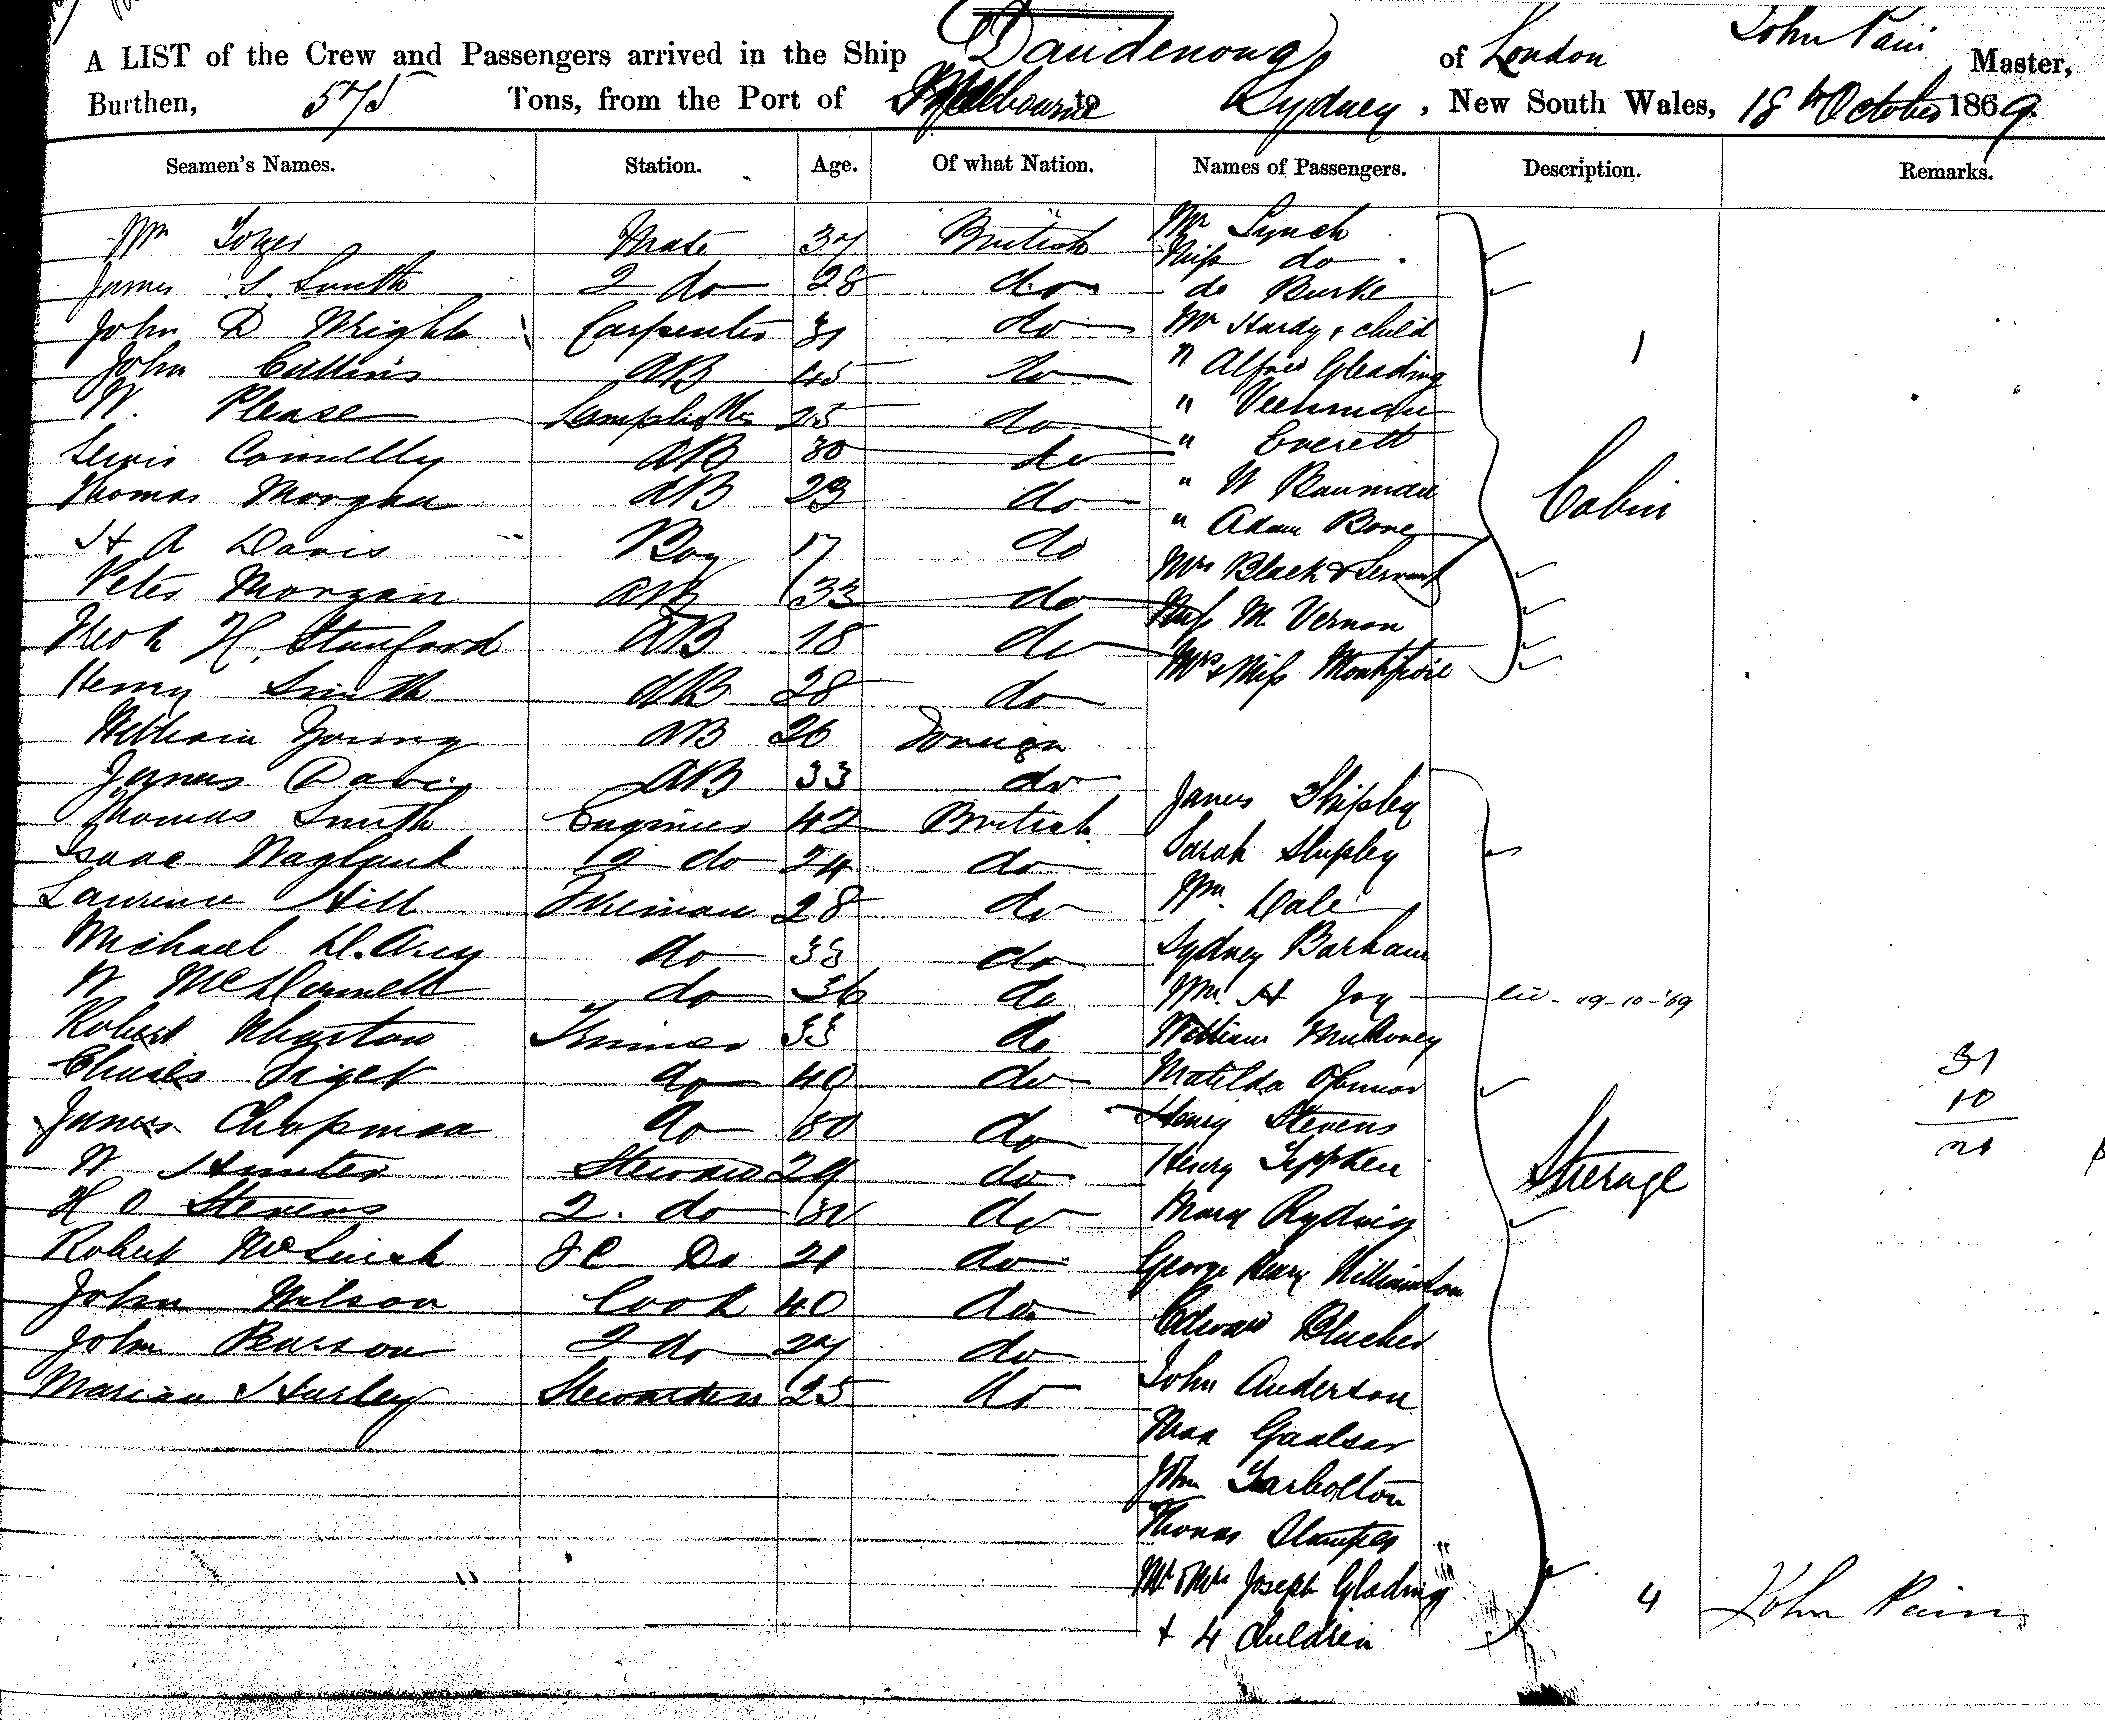 A LIST of the Crew and Passengers arrived in the Ship Dandenong of London John Pain Master,
Burthen, 575 Tons, from the Port of Melbourne to Sydney, New South Wales, 18th October 1869.
Seamen's Names. Station. Age. Of what Nation. Names of Passengers. Description. Remarks.
Wm Mate 37 British Mr Lynch
Miss do
James S. Smith 2 do 28 do do Burke
John D Wright Carpenter 31 do Mr Hardy & child 1
John Cullins AB 45 do " Alfred Gleading
W. Please Lamplighter 25 do "
Lewis Connelly AB 30 do " Everett
Thomas Morgan AB 23 do " W Bauman Cabin
H A Davis Boy 17 do " Adam Bone
Peter Morgan AB 33 do Mrs Black & Servant
H. Stanford AB 18 do Miss M. Vernon
Henry Smith AB 28 do Mrs & Miss Montifiore
William Young AB 26 Foreign
James Davis AB 33 do James Shipley
Thomas Smith Engineer 42 British Sarah Shipley
Isaac 2 do 24 do Wm. Dale
Laurence Hill Fireman 28 do Sydney Barham
Michael D'Arcy do 33 do Wm. H Joy 19-10-'69
W McDermott do 36 do William
Robert Wharton Trimer 33 do Matilda OConnor 31
Charles do 40 do Henry Stevens 10
James Chapman do 30 do Henry 21
W Hunter Steward 29 do Mary Ryding Steerage
H O Stevens 2. do 30 do George Henry Williamson
Robert do 21 do Edward Blucher
John Wilson Cook 40 do John Anderson
John Pearson 2 do 27 do Max
Marian Hurley Stewardess 25 do John Tarbolton
Thomas
Mr & Mrs Joseph Glading 4 John Pain
+ 4 Children